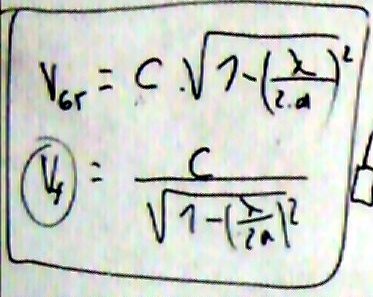 V_Gr = C . √(1-(λ/2.a)²)
V_f = C / √(1-(λ/2a)²)